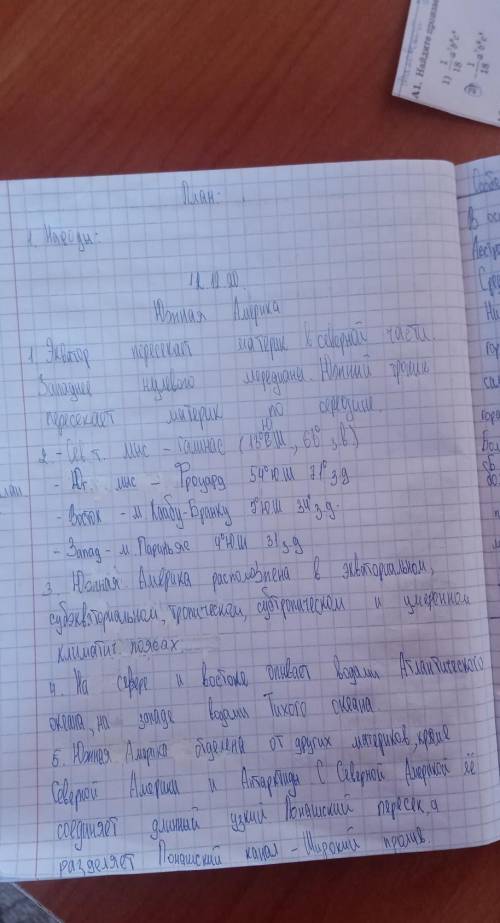 А1. Найдите произве
План:
1. Народы:
Южная Америка
1. Экватор пересекает материк в северной части.
Западнее нулевого меродиана. Южный тропик
пересекает материк по середине.
2 - Сев т. мыс - Галинас
- Юг. мыс - Фроуард 54° ЮШ 71° з.д
- Восток - м Кабу-Бранку 7° ЮШ 34° з.д.
- Запад - м. Париньяс 4° ЮШ 81 з.д
3. Южная Америка расположена в экваториальном,
субэкваториальном, тропическом, субтропическом и умеренном
климатич. поясах.
4. На севере и востоке омывает водами Атлантического
океана, на западе водами Тихого океана.
5. Южная Америка отделена от других материков, кроме
Северной Америки и Антарктиды. С Северной Америкой её
соединяет длинный узкий Понашский пересек, а
разделяет Понашский канал - Широкий пролив.